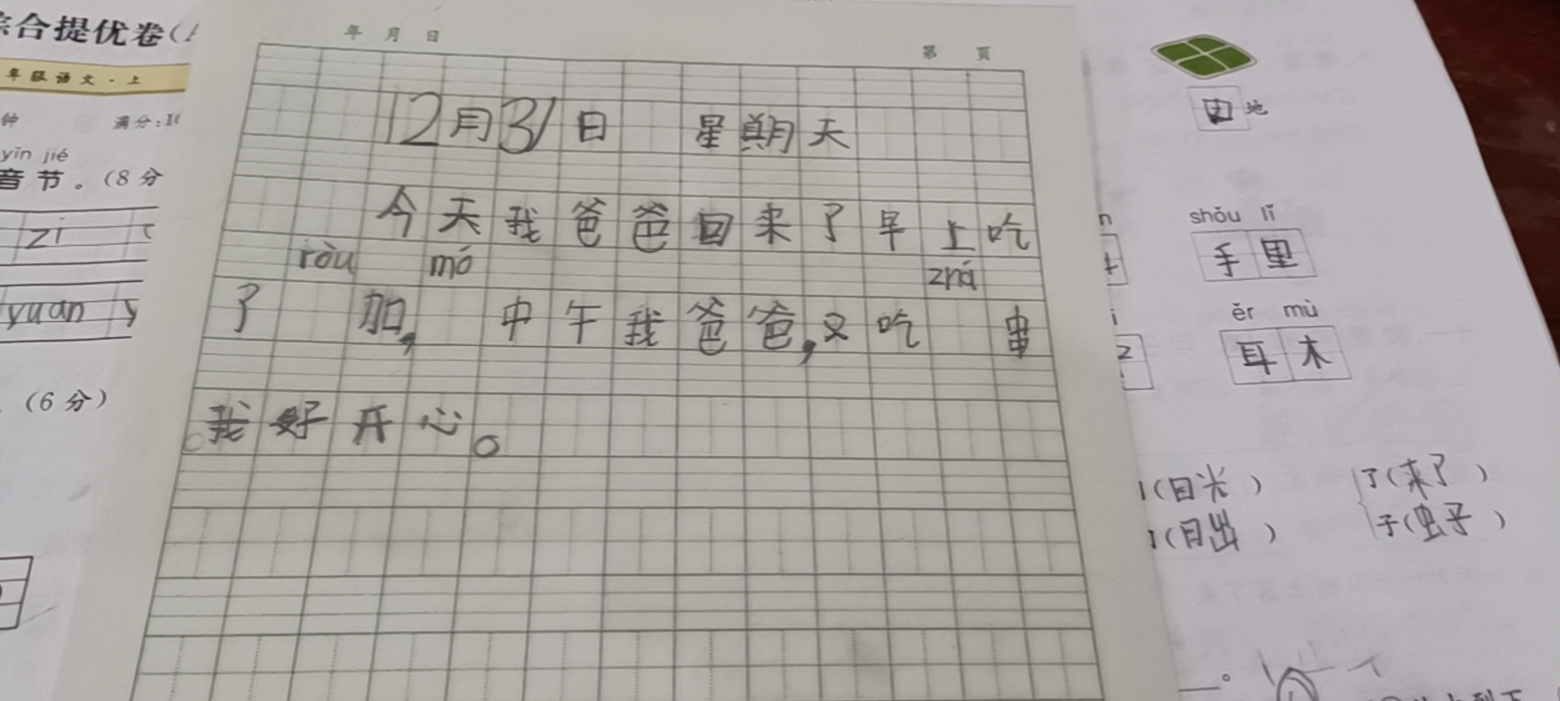 综合提优卷(
年级语文·上
钟 满分:1
yīn jié
音节。(8分
zi
yuan y
(6分)
年 月 日
第 頁
12月31日 星期天
今天我爸爸回来了早上吃
ròu mó zná
了 加,中午我爸爸,又吃 串
我好开心。
田地
shǒu lǐ
手里
ěr mù
耳木
(日光) 了(来了)
(日出) 子(虫子)